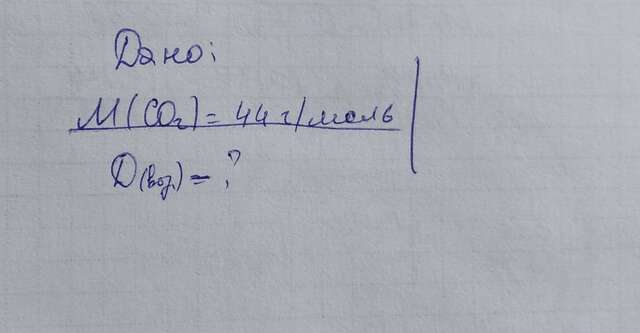 Дано:
M(CO₂) = 44 г/моль
D(воз.) = ?